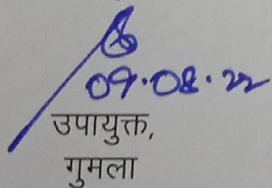 09.08.22
उपायुक्त,
गुमला